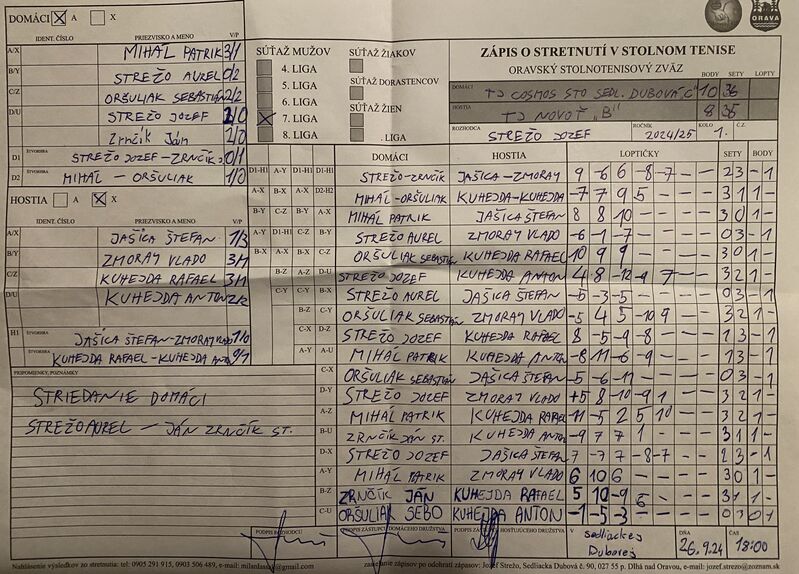 DOMÁCI A X
IDENT. ČÍSLO PRIEZVISKO A MENO V/P
A/X MIHÁL PATRIK 3/1
B/Y STREŽO AUREL 0/2
C/Z ORŠULIAK SEBASTIÁN 2/2
D/U STREŽO JOZEF
ZRNČÍK JÁN 2/0
D1 ŠTVORHRA STREŽO JOZEF-ZRNČÍK J. 0/1
D2 ŠTVORHRA MIHÁL - ORŠULIAK 1/0
HOSTIA A X
IDENT. ČÍSLO PRIEZVISKO A MENO V/P
A/X JAŠICA ŠTEFAN
B/Y ZMORAY VLADO
C/Z KUHEJDA RAFAEL
D/U KUHEJDA ANTON
H1 ŠTVORHRA JAŠICA ŠTEFAN-ZMORAY VLADO 1/0
ŠTVORHRA KUHEJDA RAFAEL-KUHEJDA 0/1
PRIPOMIENKY, POZNÁMKY
STRIEDANIE DOMÁCI
STREŽO AUREL - JÁN ZRNČÍK ST.
SÚŤAŽ MUŽOV
4. LIGA
5. LIGA
6. LIGA
7. LIGA
8. LIGA
SÚŤAŽ ŽIAKOV
SÚŤAŽ DORASTENCOV
SÚŤAŽ ŽIEN
. LIGA
ORAVA
ZÁPIS O STRETNUTÍ V STOLNOM TENISE
ORAVSKÝ STOLNOTENISOVÝ ZVÄZ
BODY SETY LOPTY
DOMÁCI TJ COSMOS STO SEDL. DUBOVÁ 10 36
HOSTIA TJ NOVOŤ „B" 8 35
ROZHODCA STREŽO JOZEF ROČNÍK 2024/25 KOLO 1. Č.Z.
DOMÁCI HOSTIA LOPTIČKY SETY BODY
D1-H1 A-Y D1-H1 D1-H1 STREŽO-ZRNČÍK JAŠICA-ZMORAY 9 -6 6 -8 -7 - - 2 3 - 1
A-X B-X A-X D2-H2 MIHÁL-ORŠULIAK KUHEJDA-KUHEJDA -7 7 9 5 - - - 3 1 1 -
B-Y C-Z B-Y A-X MIHÁL PATRIK JAŠICA ŠTEFAN 8 8 10 - - - - 3 0 1 -
A-Y D1-H1 C-Z B-Y STREŽO AUREL ZMORAY VLADO -6 -1 -7 - - - - 0 3 - 1
B-X A-X B-X C-Z ORŠULIAK SEBASTIÁN KUHEJDA RAFAEL 10 9 9 - - - - 3 0 1 -
B-Z A-Z D-U STREŽO JOZEF KUHEJDA ANTON 4 -8 -12 9 7 - - 3 2 1 -
C-Y C-Y B-X STREŽO AUREL JAŠICA ŠTEFAN -5 -3 -5 - - - - 0 3 - 1
B-Z C-Y ORŠULIAK SEBASTIÁN ZMORAY VLADO -5 4 5 -10 9 - - 3 2 1 -
C-X D-Z STREŽO JOZEF KUHEJDA RAFAEL 8 -5 -9 -8 - - - 1 3 - 1
A-Y A-U MIHÁL PATRIK KUHEJDA ANTON -8 11 -6 -9 - - - 1 3 - 1
C-X ORŠULIAK SEBASTIÁN JAŠICA ŠTEFAN -5 -6 -11 - - - - 0 3 - 1
D-Y STREŽO JOZEF ZMORAY VLADO 8 -10 -9 3 2 1 -
A-Z MIHÁL PATRIK KUHEJDA RAFAEL -11 -5 2 5 10 - - 3 2 1 -
B-U ZRNČÍK JÁN ST. KUHEJDA ANTON -9 7 7 1 - - - 3 1 1 -
D-X STREŽO JOZEF JAŠICA ŠTEFAN -7 7 -8 -7 - - 2 3 - 1
A-Y MIHÁL PATRIK ZMORAY VLADO 6 10 6 - - - - 3 0 1 -
B-Z ZRNČÍK JÁN KUHEJDA RAFAEL 5 10 -9 6 - - - 3 1 1 -
C-U ORŠULIAK SEBO KUHEJDA ANTON -1 -5 -3 - - - - 0 3 0 1
PODPIS ROZHODCU PODPIS ZÁSTUPCU DOMÁCEHO DRUŽSTVA PODPIS HOSŤUJÚCEHO DRUŽSTVA V Sedliackej Dubovej DŇA 26.9.24 ČAS 18:00
Nahlásenie výsledkov zo stretnutia: tel: 0905 291 915, 0903 506 489, e-mail: zasielanie zápisov po odohratí zápasov: Jozef Strežo, Sedliacka Dubová č. 90, 027 55 p. Dlhá nad Oravou, e-mail: jozef.strezo@zoznam.sk